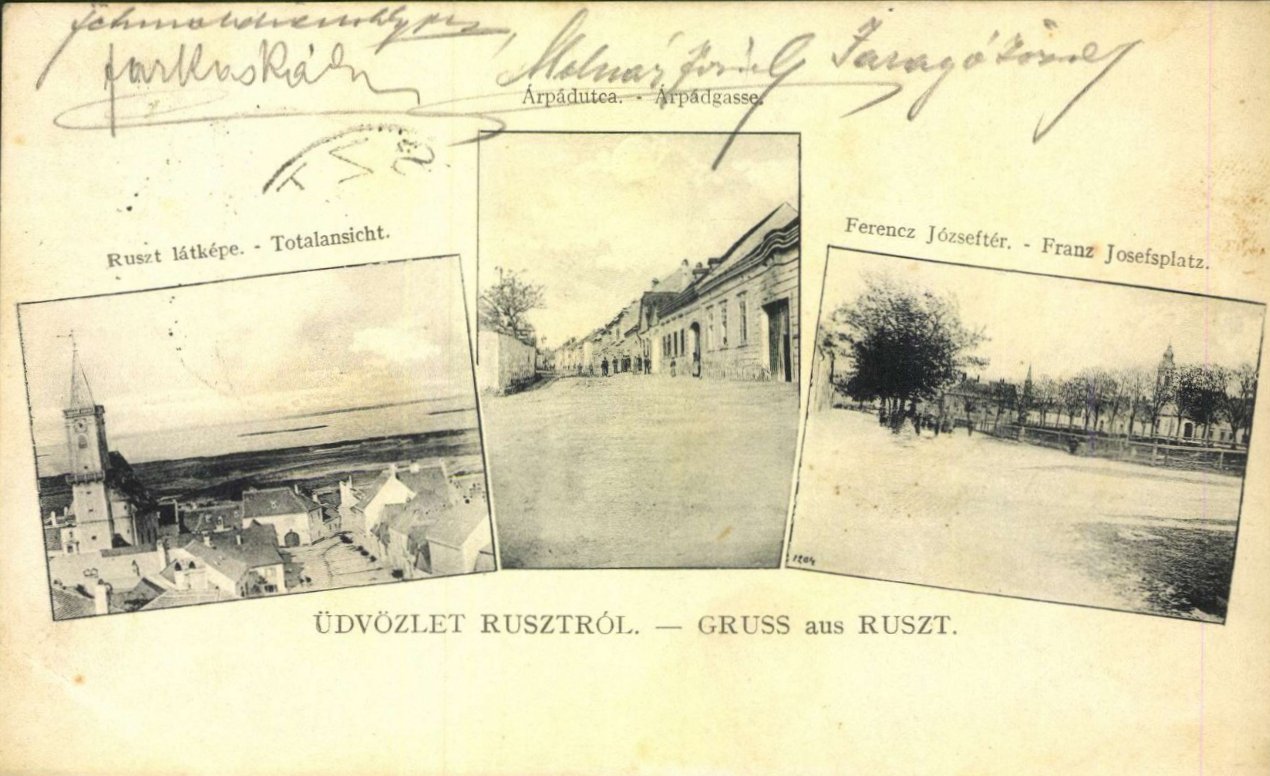 Farkas Kál
Molnár József Faragó József
Árpádutca. - Árpádgasse.
Ruszt látképe. - Totalansicht.
Ferencz Józseftér. - Franz Josefsplatz.
1204
ÜDVÖZLET RUSZTRÓL. — GRUSS aus RUSZT.